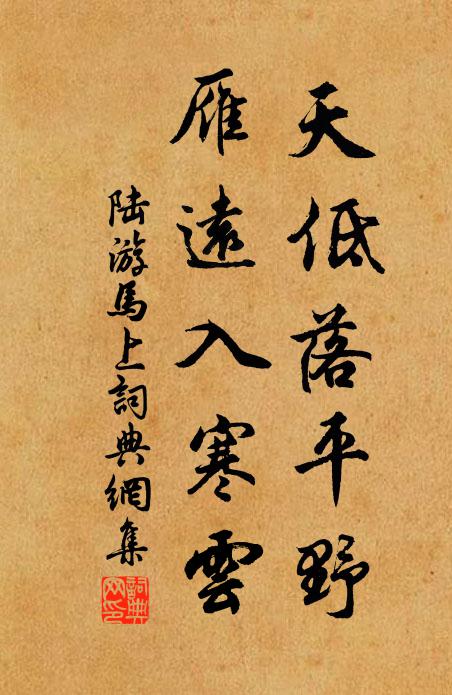 天低落平野
雁遠入寒雲
陆游馬上詞典網集
詞典网印